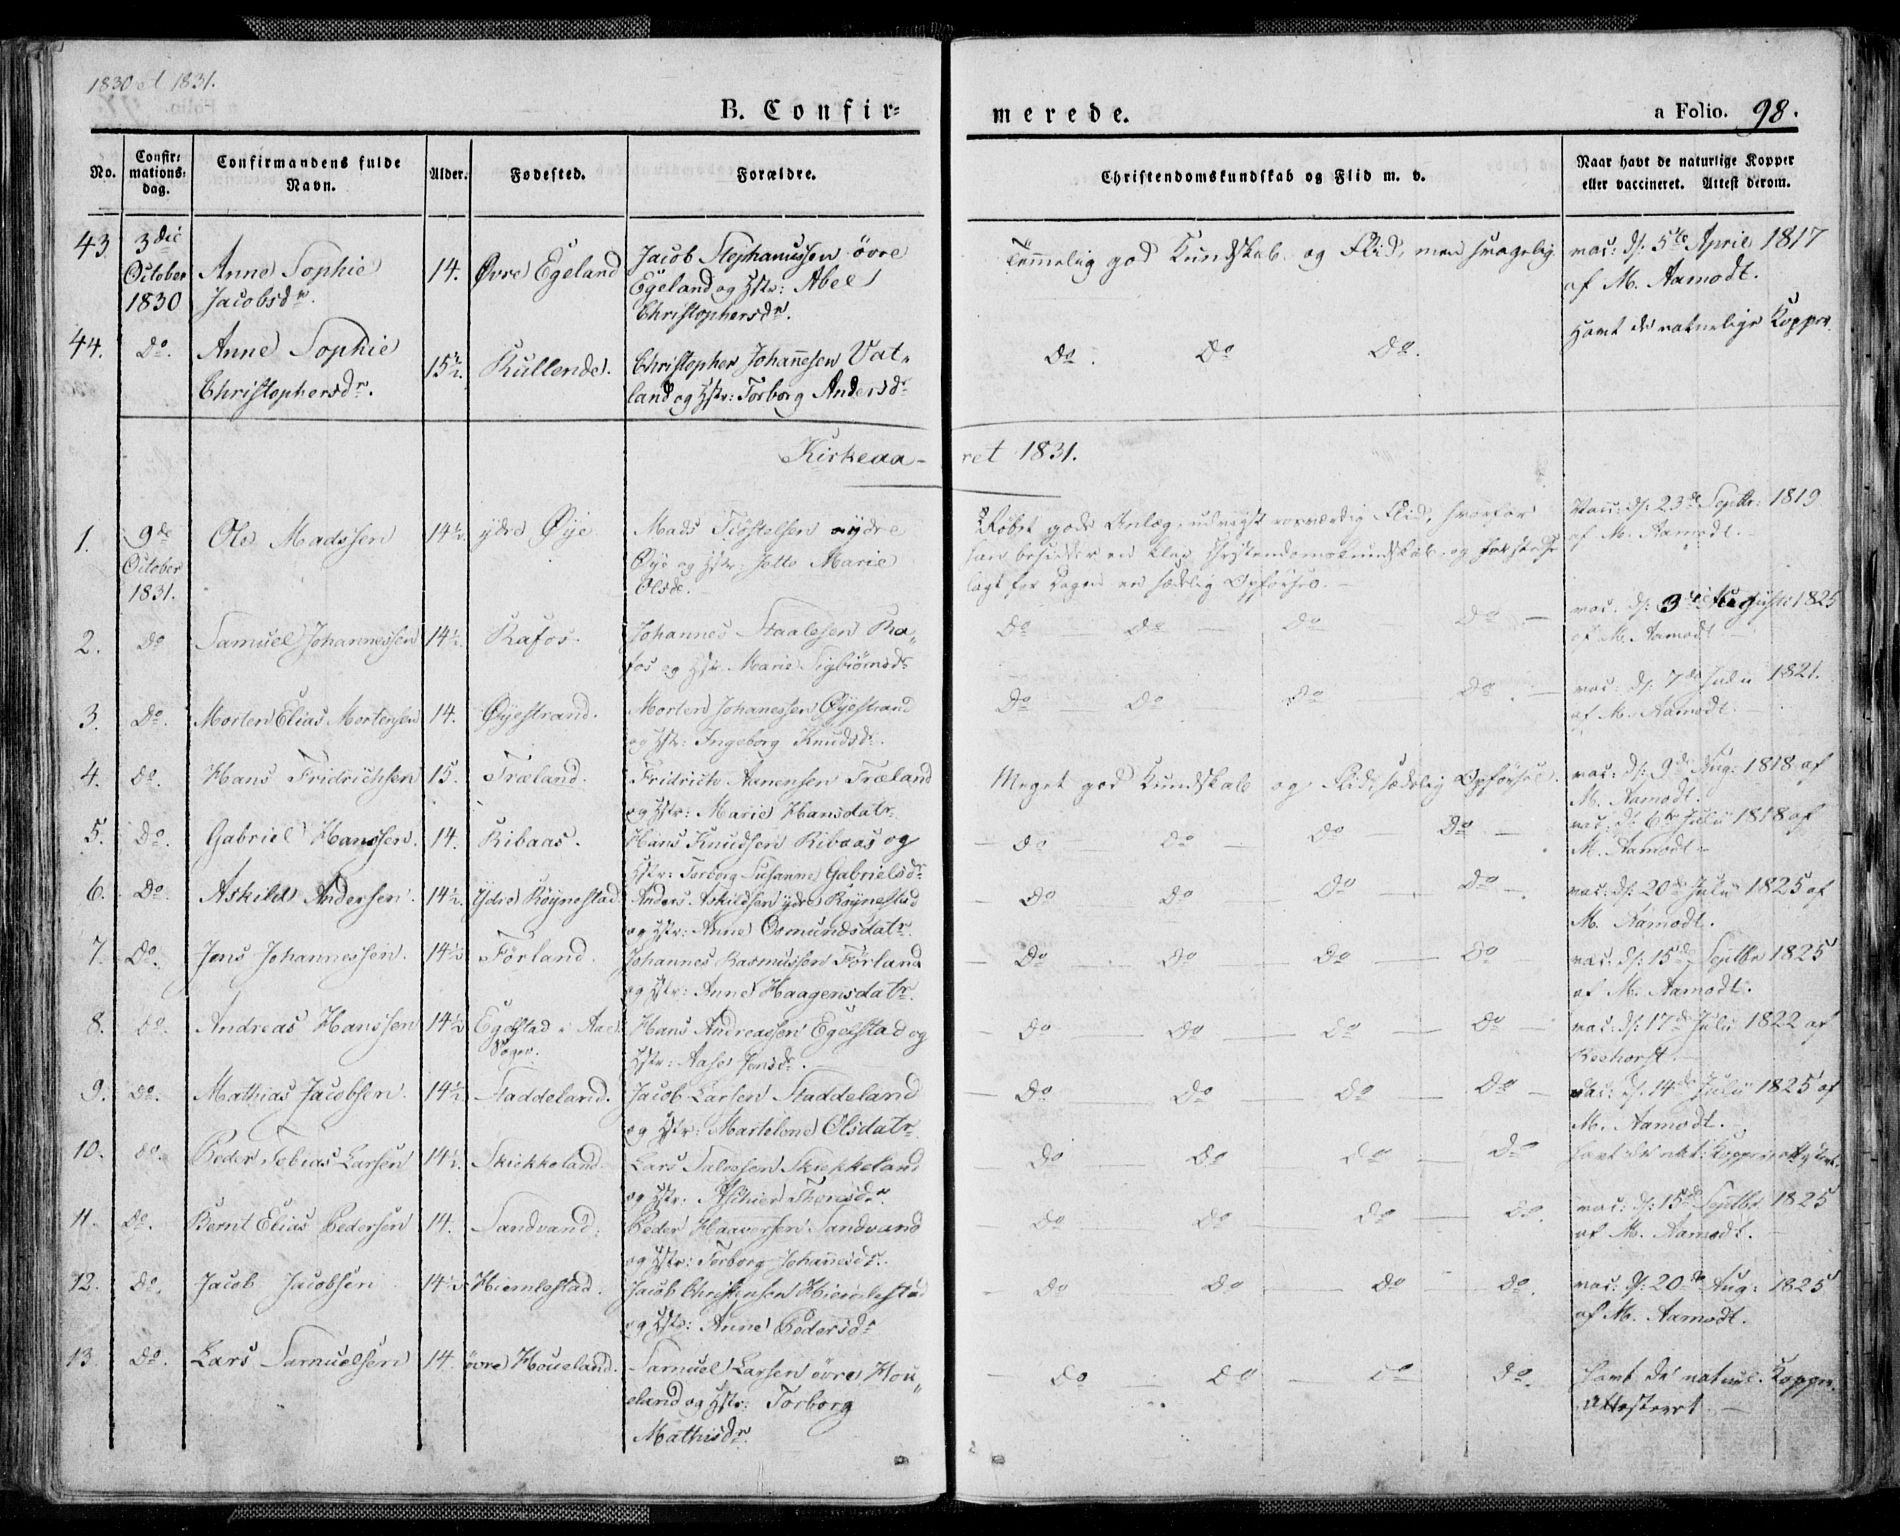 1830 et 1831.
B. Confir=
merede.
a Folio. 98.
No.
Confir:
mations:
dag.
Confirmandens fulde
Navn.
Alder.
Fødested.
Forældre.
Christendomskundskab og Flid m. v.
Naar havt de naturlige Kopper
eller vaccineret. Attest derom.
43
3die
October
1830
Anne Sophie
Jacobsdr.
14.
Øvre Egeland
Jacob Stephanussen övre
Egeland og Hstr: Abel
Christophersdr.
Temmelig god Kundskab og Flid, men svagelig
vac: d: 5te April 1817
af M. Aamodt.
44.
Do.
Anne Sophie
Christophersdr.
15½.
Kullende.
Christopher Johanesen Vat„
land og Hstr: Torborg Andersdr
Do. Do Do.
Havt de naturlige Kopper
Kirkeaa-
ret 1831.
1.
9de
October
1831.
Ole Madssen
14½
ydre Øye
Mads ydre
Øye og Hstr: Marie
Olsdr.
gode Anlæg, Flid, hvorfor
han besidder en klar Christendomskundskab, og
lagt for Dagen en sædelig Opförsel. -
Vacc: d: 23de Septbr: 1819
af M. Aamodt. -
2.
Do
Samuel Johannessen
14½.
Rafos.
Johannes Staalesen Ra„
fos og Hstr Marie Sigbiörnsdr
Do - Do - Do - Do -
vac: d: 3die Augusti 1825
af M. Aamodt -
3.
Do.
Morten Elias Mortensen
14.
Øyestrand.
Morten Johanessen Øyestrand
og Hstr: Ingeborg Knudsdr.
Do Do Do Do. -
vac: d: 7de Julii 1821.
af M. Aamodt. -
4.
Do.
Hans Fridrichsen
15.
Træland.
Fridrich Aanensen Træland
og Hstr: Marie Hansdatr.
Meget god Kundskab og Flid, sædelig Opförsel.
vac: d: 9de Aug: 1818 af
M. Aamodt.
5.
Do.
Gabriel Hanssen.
14.
Ribaas.
Hans Knudsen Ribaas og
Hstr: Torborg Susanne Gabrielsdr
- Do - Do - Do - Do -
vac: d: 6te Julii 1818 af
M. Aamodt -
6.
Do.
Askild Andersen.
14½
Ydre Röynestad
Anders Askildsen ydre Röynestad
og Hstr: Anne Osmundsdatr.
- Do - Do - Do - Do -
vac: d: 20de Julii 1825 af
M. Aamodt.
7.
Do.
Jens Johannessen.
14½
Förland.
Johannes Rasmussen Förland
og Hstr: Anne Haagensdatr.
- Do - Do - Do - Do
vac: d: 15de Septbr 1825
af M. Aamodt.
8.
Do.
Andreas Hanssen
14½
Egelstad i Aae
Sogn.
Hans Andreassen Egelstad og
Hstr: Aase Jensdr.
Do - Do - Do - Do
vac: d: 17de Julii 1822 af
9.
Do.
Mathias Jacobsen.
14½
Staddeland.
Jacob Larsen Staddeland
og Hstr: Martelene Olsdatr
- Do - Do - Do - Do -
vac: d: 14de Julii 1825 af
M. Aamodt.
10.
Do.
Peder Tobias Larsen
14½.
Skiekkeland.
Lars Salvesen Skiekkeland
og Hstr. Thoresdr.
Do - Do - Do - Do
havt de nat: Kopper
11.
Do.
Bernt Elias Pedersen
14.
Sandvand.
Peder Haaversen Sandvand
og Hstr: Torborg Johanesdr.
- Do - Do - Do - Do.
vac: d: 15de Septbr 1825
af M. Aamodt.
12.
Do.
Jacob Jacobsen
14½
Hiemlestad.
Jacob Christensen Hiemlestad
og Hstr: Anne Pedersdr
- Do - Do - Do - Do.
vac: d: 20de Aug: 1825
af M. Aamodt.
13.
Do.
Lars Samuelsen
14.
övre Houeland.
Samuel Larsen övre Hou„
eland og Hstr: Torborg
Mathisdr.
- Do - Do - Do - Do.
havt de naturl. Kopper.
Attesteret. -